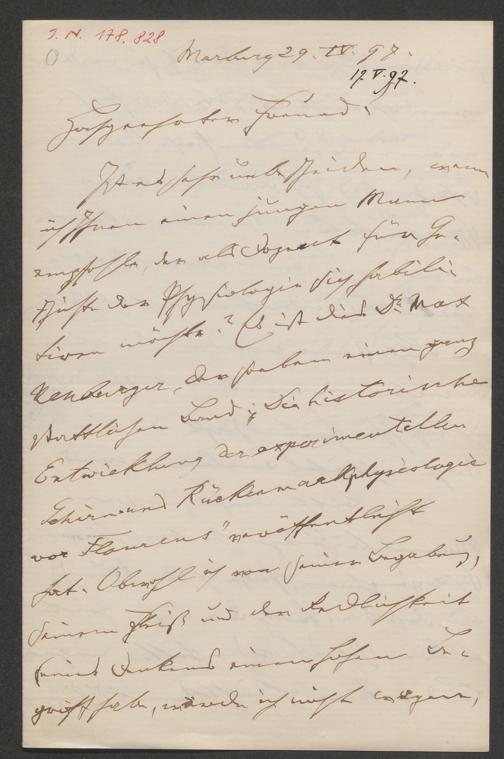 I. N. 178.828
Marburg 29. IV. 97.
17. V. 97.
Hochgeehrter Freund!
Ist es sehr unbescheiden, wenn
ich Ihnen einen jungen Mann
empfehle, der als Dozent für Ge-
schichte der Physiologie sich habili-
tiren möchte? Es ist dies Dr. Max
Neuburger, der soeben einen ganz
stattlichen Band: „Die historische
Entwicklung der experimentellen
Gehirn- und Rückenmarksphysiologie
vor Flourens" veröffentlicht
hat. Obwohl ich von seiner Begabung,
seinem Fleiß und der Redlichkeit
seines Denkens einen hohen Be-
griff habe, würde ich nicht wagen,